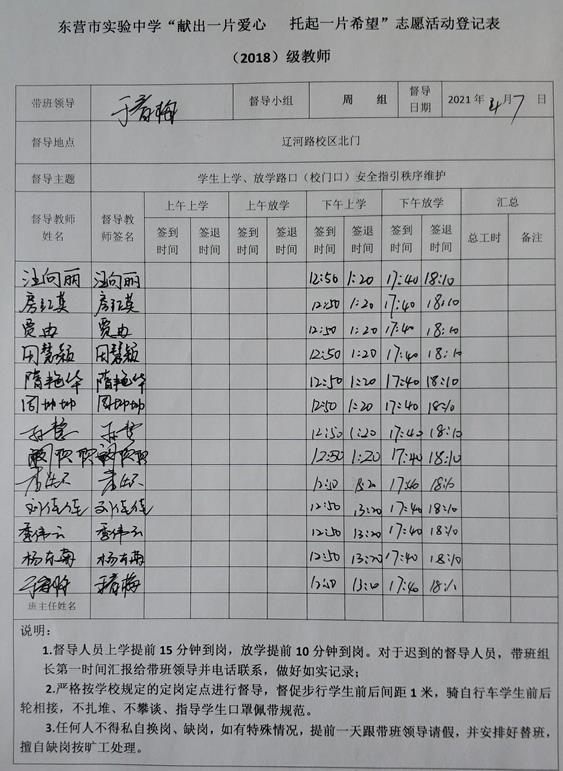 东营市实验中学“献出一片爱心 托起一片希望”志愿活动登记表
（2018）级教师
带班领导 于春梅 督导小组 周 组 督导日期 2021年4月7日
督导地点 辽河路校区北门
督导主题 学生上学、放学路口（校门口）安全指引秩序维护
督导教师姓名 督导教师签名 上午上学 上午放学 下午上学 下午放学 汇总
签到时间 签退时间 签到时间 签退时间 签到时间 签退时间 签到时间 签退时间 总工时 备注
汪向丽 汪向丽 12:50 1:20 17:40 18:10
房红英 房红英 12:50 1:20 17:40 18:10
贾由 贾由 12:50 1:20 17:40 18:10
田慧颖 田慧颖 12:50 1:20 17:40 18:10
隋艳华 隋艳华 12:50 1:20 17:40 18:10
周坤坤 周坤坤 12:50 1:20 17:40 18:10
孙哲 孙哲 12:50 1:20 17:40 18:10
12:50 1:20 17:40 18:10
刘佳佳 刘佳佳 12:50 13:20 17:40 18:10
季伟云 季伟云 12:50 13:20 17:40 18:10
杨东南 杨东南 12:50 13:20 17:40 18:10
于春梅 于春梅 12:50 17:40
班主任姓名
说明：
1.督导人员上学提前15分钟到岗，放学提前10分钟到岗。对于迟到的督导人员，带班组
长第一时间汇报给带班领导并电话联系，做好如实记录；
2.严格按学校规定的定岗定点进行督导，督促步行学生前后间距1米，骑自行车学生前后
轮相接，不扎堆、不攀谈、指导学生口罩佩带规范。
3.任何人不得私自换岗、缺岗，如有特殊情况，提前一天跟带班领导请假，并安排好替班，
擅自缺岗按旷工处理。